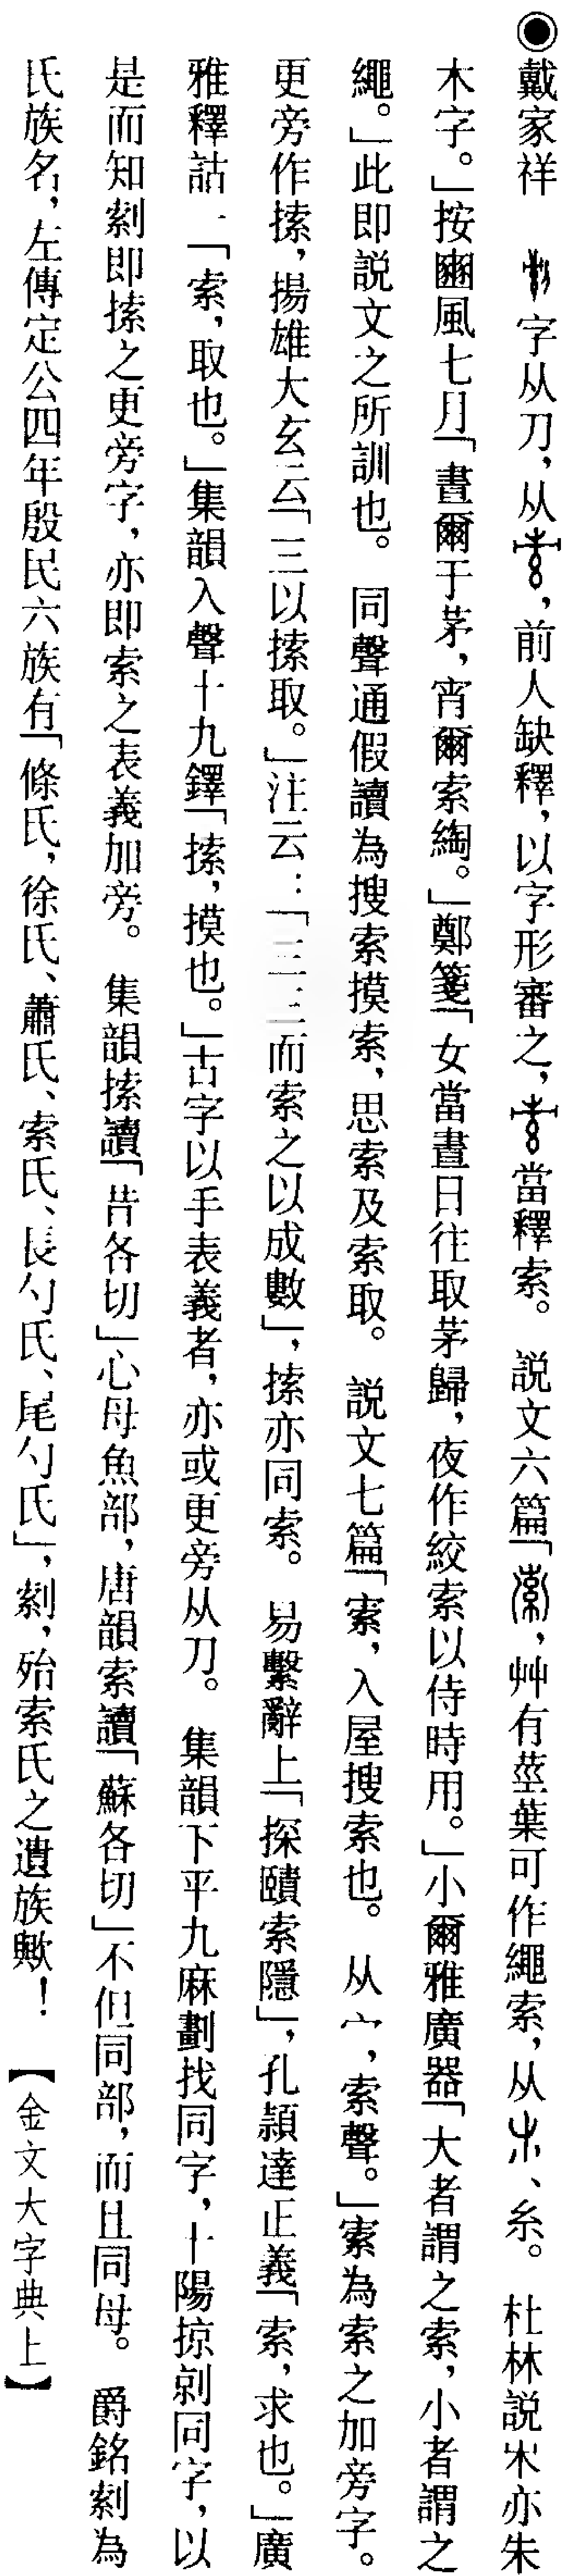 ◉戴家祥　字从刀，从，前人缺釋，以字形審之，當釋索。　説文六篇「，艸有莖葉可作繩索，从、糸。　杜林説米亦朱
木字。」按豳風七月「晝爾于茅，宵爾索綯。」鄭箋「女當晝日往取茅歸，夜作絞索以侍時用。」小爾雅廣器「大者謂之索，小者謂之
繩。」此即説文之所訓也。　同聲通假讀為搜索摸索，思索及索取。　説文七篇「㝯，入屋搜索也。　从宀，索聲。」㝯為索之加旁字。
更旁作揼，揚雄大玄云「三以揼取。」注云：「三三而索之以成數」，揼亦同索。　易繫辭上「探賾索隱」，孔頴達正義「索，求也。」廣
雅釋詁一「索，取也。」集韻入聲十九鐸「揼，摸也。」古字以手表義者，亦或更旁从刀。　集韻下平九麻劃找同字，十陽掠剠同字，以
是而知㓽即揼之更旁字，亦即索之表義加旁。　集韻揼讀「昔各切」心母魚部，唐韻索讀「蘇各切」不但同部，而且同母。　爵銘㓽為
氏族名，左傳定公四年殷民六族有「條氏，徐氏、蕭氏、索氏、長勺氏、尾勺氏」，㓽，殆索氏之遺族歟！　【金文大字典上】